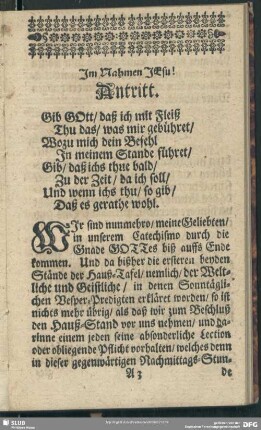 Im Nahmen JEsu!
Antritt.
Gib GOtt/ daß ich mit Fleiß
Thu das/ was mir gebühret/
Wozu mich dein Befehl
In meinem Stande führet/
Gib/ daß ichs thue bald/
Zu der Zeit/ da ich soll/
Und wenn ichs thu/ so gib/
Daß es gerathe wohl.
WIr sind nunmehro/ meine Geliebten/
in unserem Catechismo durch die
Gnade GOTTes biß auffs Ende
kommen. Und da bißher die ersteren beyden
Stände der Hauß-Tafel/ nemlich/ der Welt-
liche und Geistliche/ in denen Sonntägli-
chen Vesper-Predigten erkläret worden/ so ist
nichts mehr übrig/ als daß wir zum Beschluß
den Hauß-Stand vor uns nehmen/ und da-
rinne einem jeden seine absonderliche Lection
oder obliegende Pflicht vorhalten/ welches denn
in dieser gegenwärtigen Nachmittags-Stun-
A 3 de
SLUB
DFG